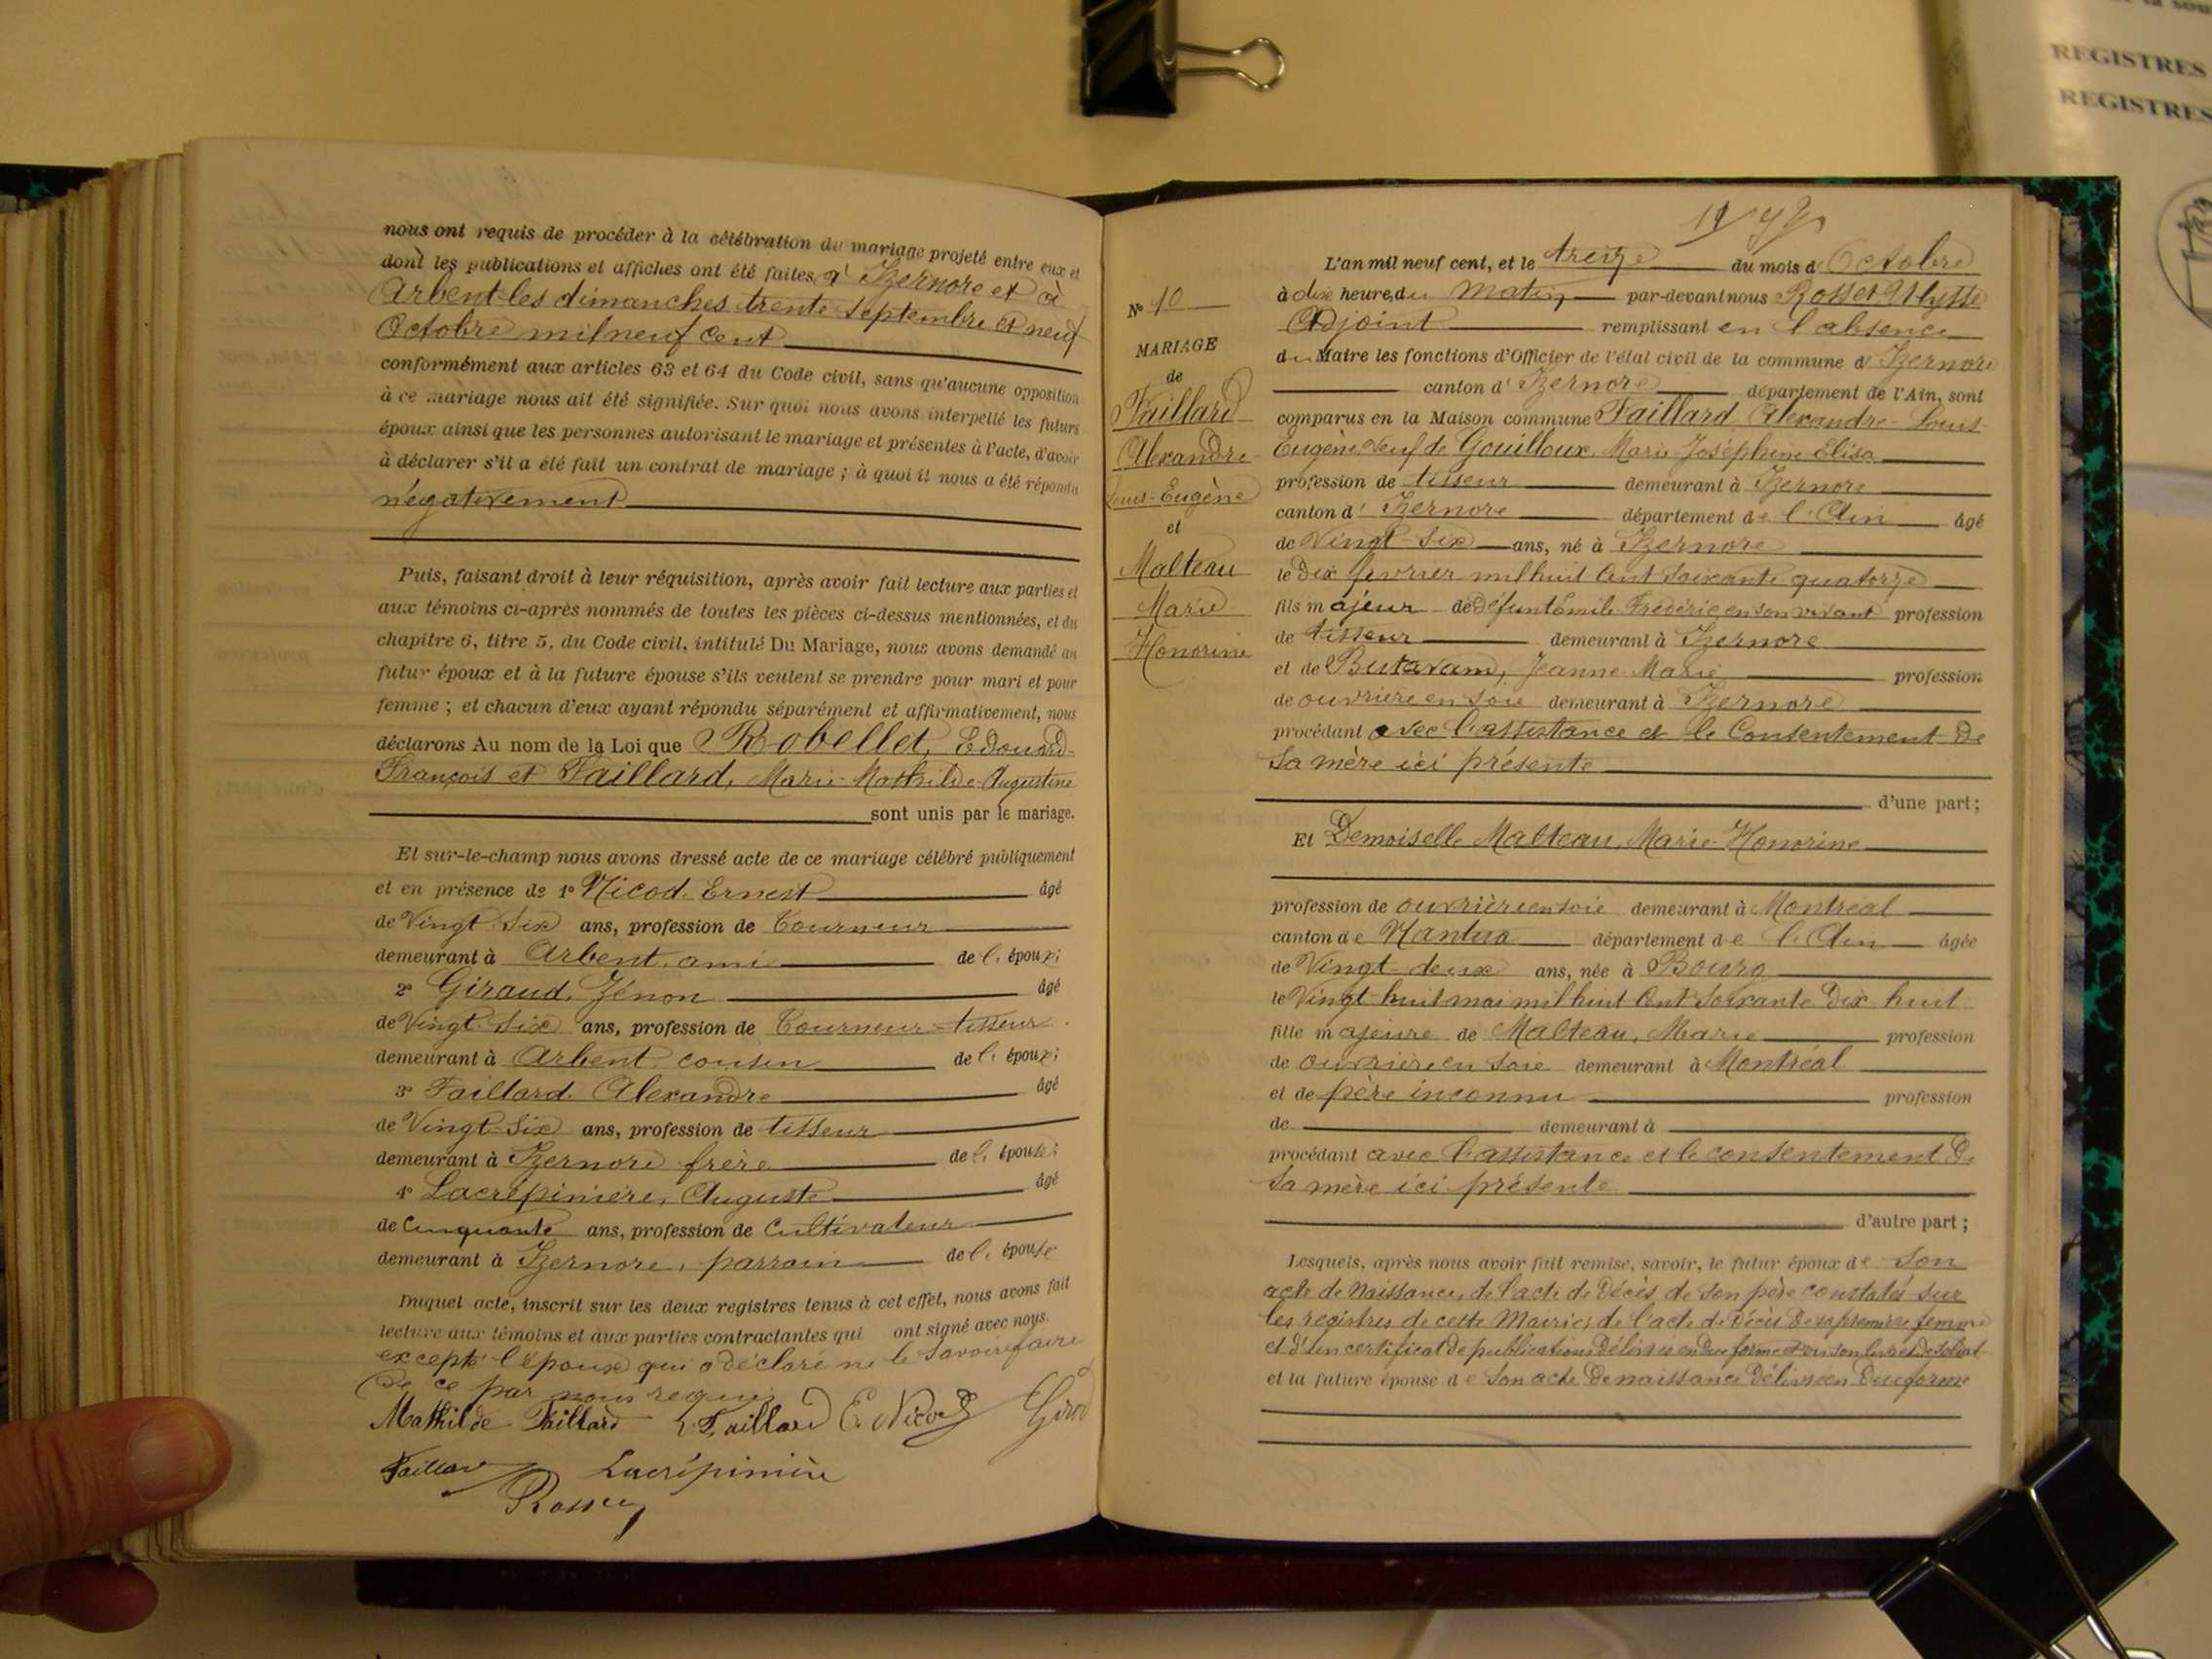 nous ont requis de procéder à la célébration du mariage projeté entre eux et
dont les publications et affiches ont été faites à Izernore et à
Arbent les dimanches trente septembre et neuf
Octobre mil neuf cent
conformément aux articles 63 et 64 du Code civil, sans qu'aucune opposition
à ce mariage nous ait été signifiée. Sur quoi nous avons interpellé les futurs
époux ainsi que les personnes autorisant le mariage et présentes à l'acte, d'avoir
à déclarer s'il a été fait un contrat de mariage ; à quoi il nous a été répondu
négativement
Puis, faisant droit à leur réquisition, après avoir fait lecture aux parties et
aux témoins ci-après nommés de toutes les pièces ci-dessus mentionnées, et du
chapitre 6, titre 5, du Code civil, intitulé Du Mariage, nous avons demandé au
futur époux et à la future épouse s'ils veulent se prendre pour mari et pour
femme ; et chacun d'eux ayant répondu séparément et affirmativement, nous
déclarons Au nom de la Loi que Robellet, Edouard-
François et Faillard, Marie-Mathilde-Augustine
sont unis par le mariage.
Et sur-le-champ nous avons dressé acte de ce mariage célébré publiquement
et en présence de 1° Nicod Ernest âgé
de Vingt-Six ans, profession de Tourneur
demeurant à Arbent, ami de l' époux;
2° Giraud, Zénon âgé
de Vingt-Six ans, profession de Tourneur-tisseur
demeurant à Arbent cousin de l' époux;
3° Faillard Alexandre âgé
de Vingt-Six ans, profession de tisseur
demeurant à Izernore frère de l' épouse;
4° Lacrépinière, Auguste âgé
de Cinquante ans, profession de Cultivateur
demeurant à Izernore, parrain de l' épouse
Duquel acte, inscrit sur les deux registres tenus à cet effet, nous avons fait
lecture aux témoins et aux parties contractantes qui ont signé avec nous
excepté l'époux qui a déclaré ne le savoir faire
de ce par nous requis
Mathilde Faillard Faillard E. Nicod
Faillard Lacrépinière
Rosset
L'an mil neuf cent, et le treize du mois d'Octobre
à dix heure, du matin par-devant nous Rosset Ulysse
Adjoint remplissant en l'absence
du Maire les fonctions d'Officier de l'état civil de la commune d'Izernore
canton d'Izernore département de l'Ain, sont
comparus en la Maison commune Faillard Alexandre-Louis-
Eugène Veuf de Gouilloux, Marie Joséphine Elisa
profession de tisseur demeurant à Izernore
canton d'Izernore département de l'Ain âgé
de Vingt-Six ans, né à Izernore
le Dix février mil huit Cent Soixante quatorze
fils majeur de Défunt Emile Frédéric en son vivant profession
de tisseur demeurant à Izernore
et de Butavand, Jeanne-Marie profession
de ouvrière en Soie demeurant à Izernore
procédant avec l'assistance et le Consentement de
Sa mère ici présente
d'une part;
Et Demoiselle Malteau, Marie-Honorine
profession de ouvrière en soie demeurant à Montréal
canton de Nantua département de l'Ain âgée
de Vingt-deux ans, née à Bourg
le Vingt huit mai mil huit Cent Soixante Dix huit
fille majeure de Malteau, Marie profession
de ouvrière en Soie demeurant à Montréal
et de père inconnu profession
de demeurant à
procédant avec l'assistance et le consentement de
Sa mère ici présente
d'autre part;
Lesquels, après nous avoir fait remise, savoir, le futur époux de Son
acte de Naissance, de l'acte de Décès de Son père constatés sur
les registres de cette Mairie, de l'acte de Décès de sa première femme
et d'un certificat de publications délivré en due forme
et la future épouse de Son acte de naissance Délivré en Due forme
N° 10
MARIAGE
de
Faillard
Alexandre-
Louis-Eugène
et
Malteau
Marie
Honorine
REGISTRES
REGISTRES